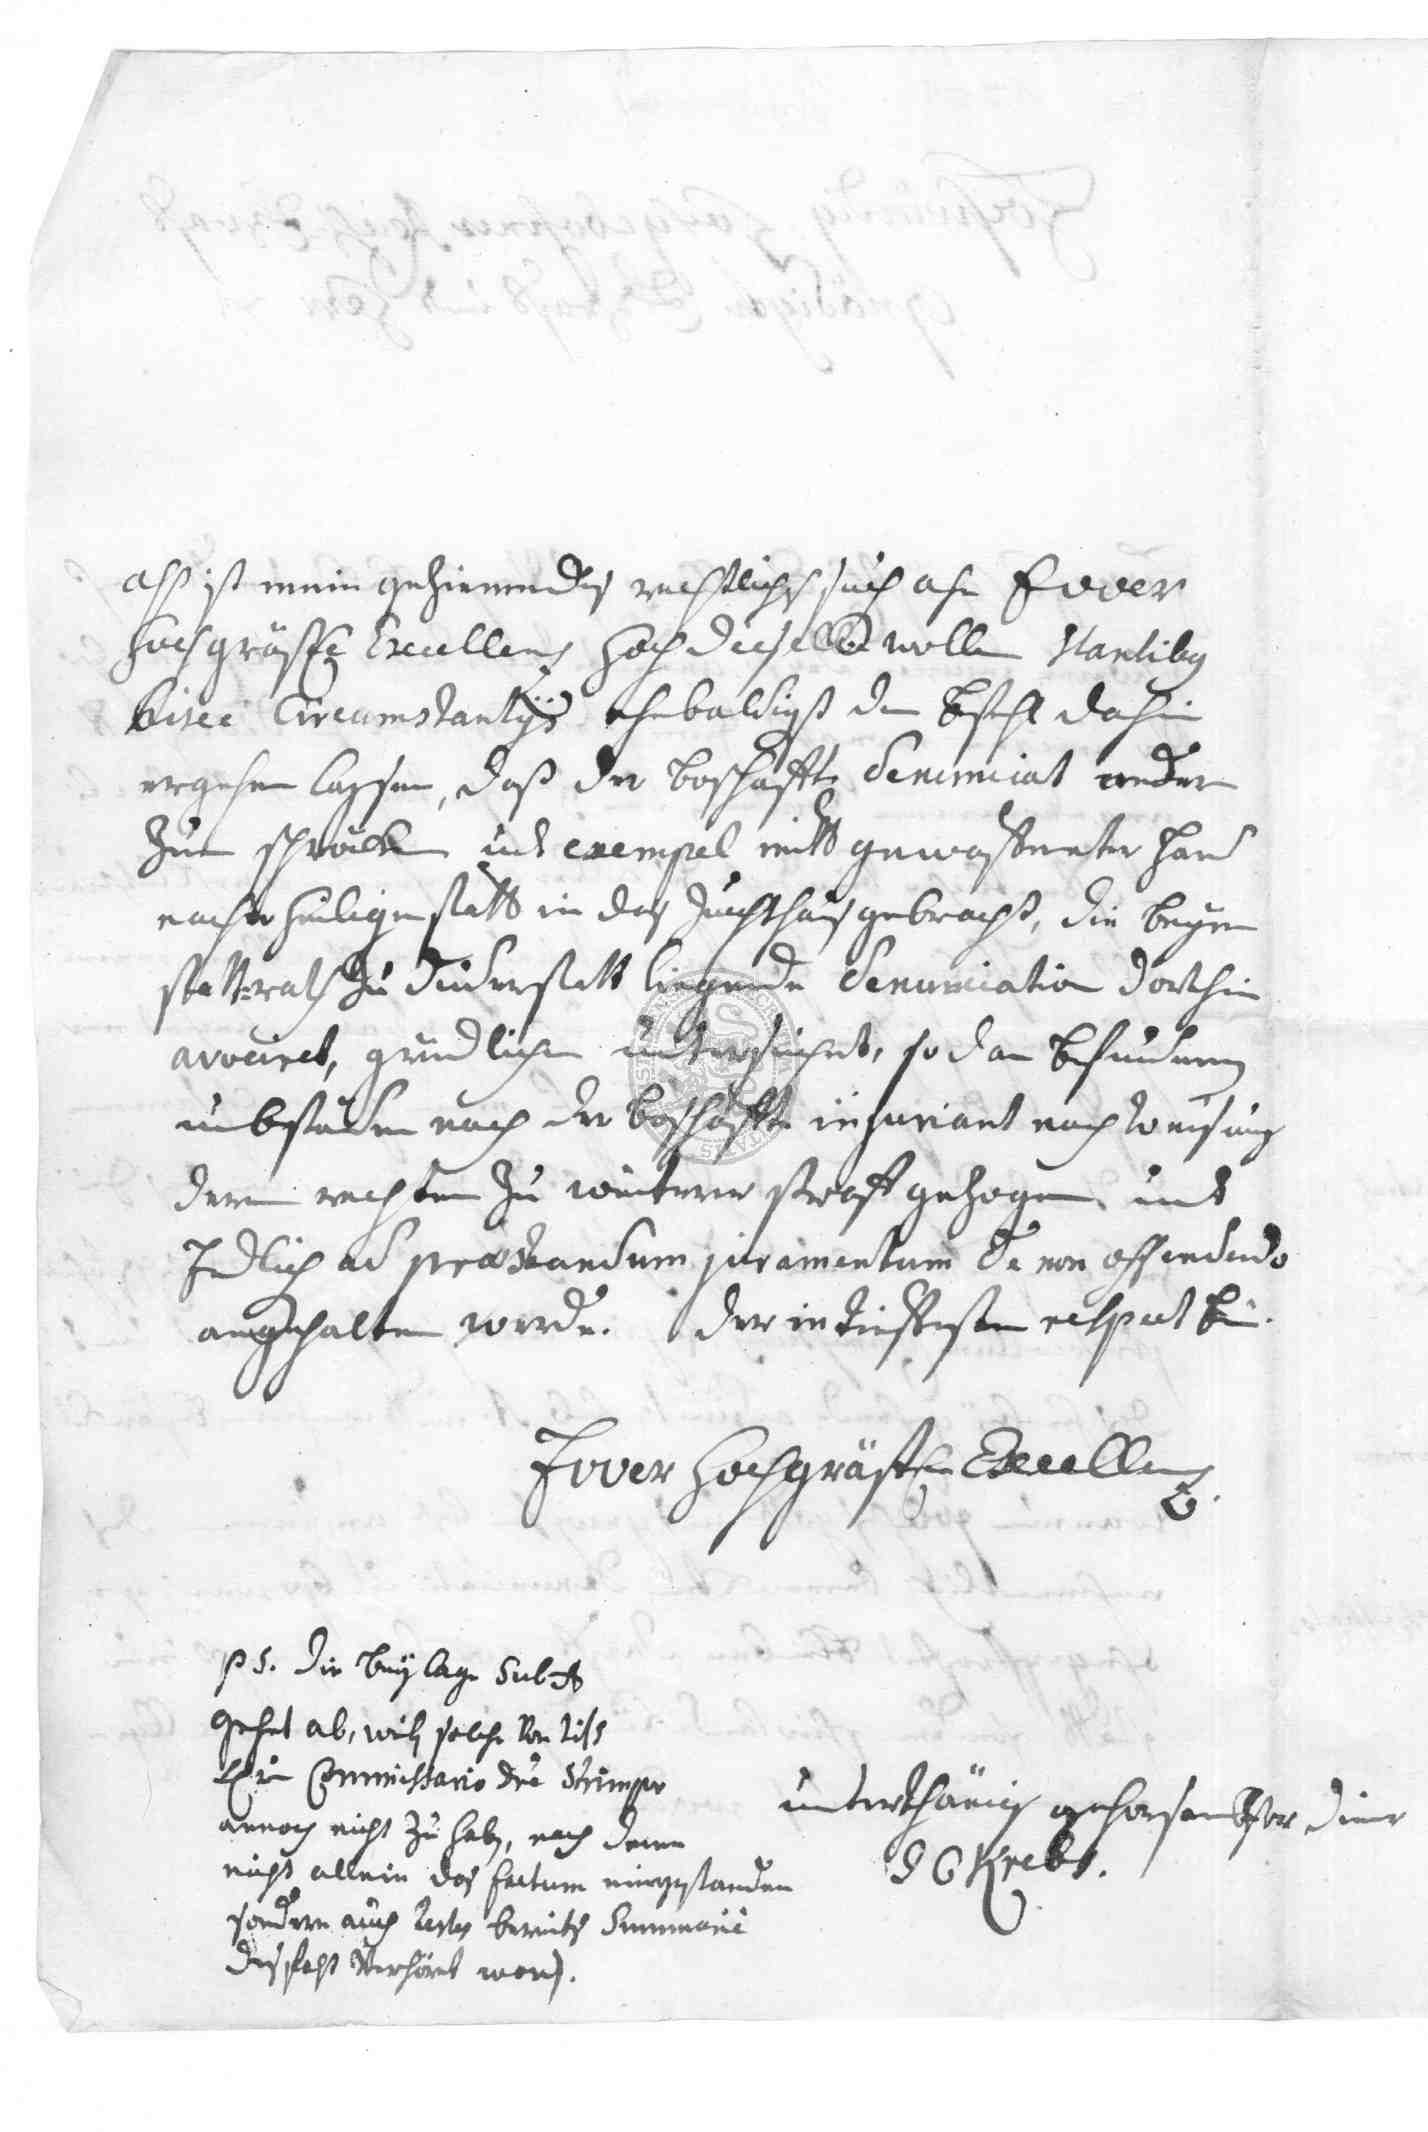 alß ist mein geziemendes rechtliches such ahn Ewer
Hochgräffl Excellentz Hoch dieselbe wollen stantibus
hisce Circumstantijs ehebaldigst den befehl dahin
ergehen lassen, daß der boshaffte denunciat andern
zum schröcken und exempel mitt gewaffneter Hand
nacher Heiligenstatt in das Zuchthaus gebracht, die beym
stattrath zu Duderstatt liegende denunciation dorthin
avociret, gründlichen untersuchet, so dan befundenen
umbständen nach der boshaffte injuriant nach weisung
deren rechten zu weiterer straff gezogen und
Endlich ad praestandum juramentum de non offendendo
angehalten werde. Der in tieffesten respect bin.
Ewer Hochgräffl Excellentz
PS. die beylage sub A
gehet ab, weil solche von
Commissario
annoch nicht zu haben, nach deme
nicht allein das factum eingestanden
sondern auch testes bereits Summarie
desfalß Verhöret worden.
unterthänig gehorsambster diener
Krebs.